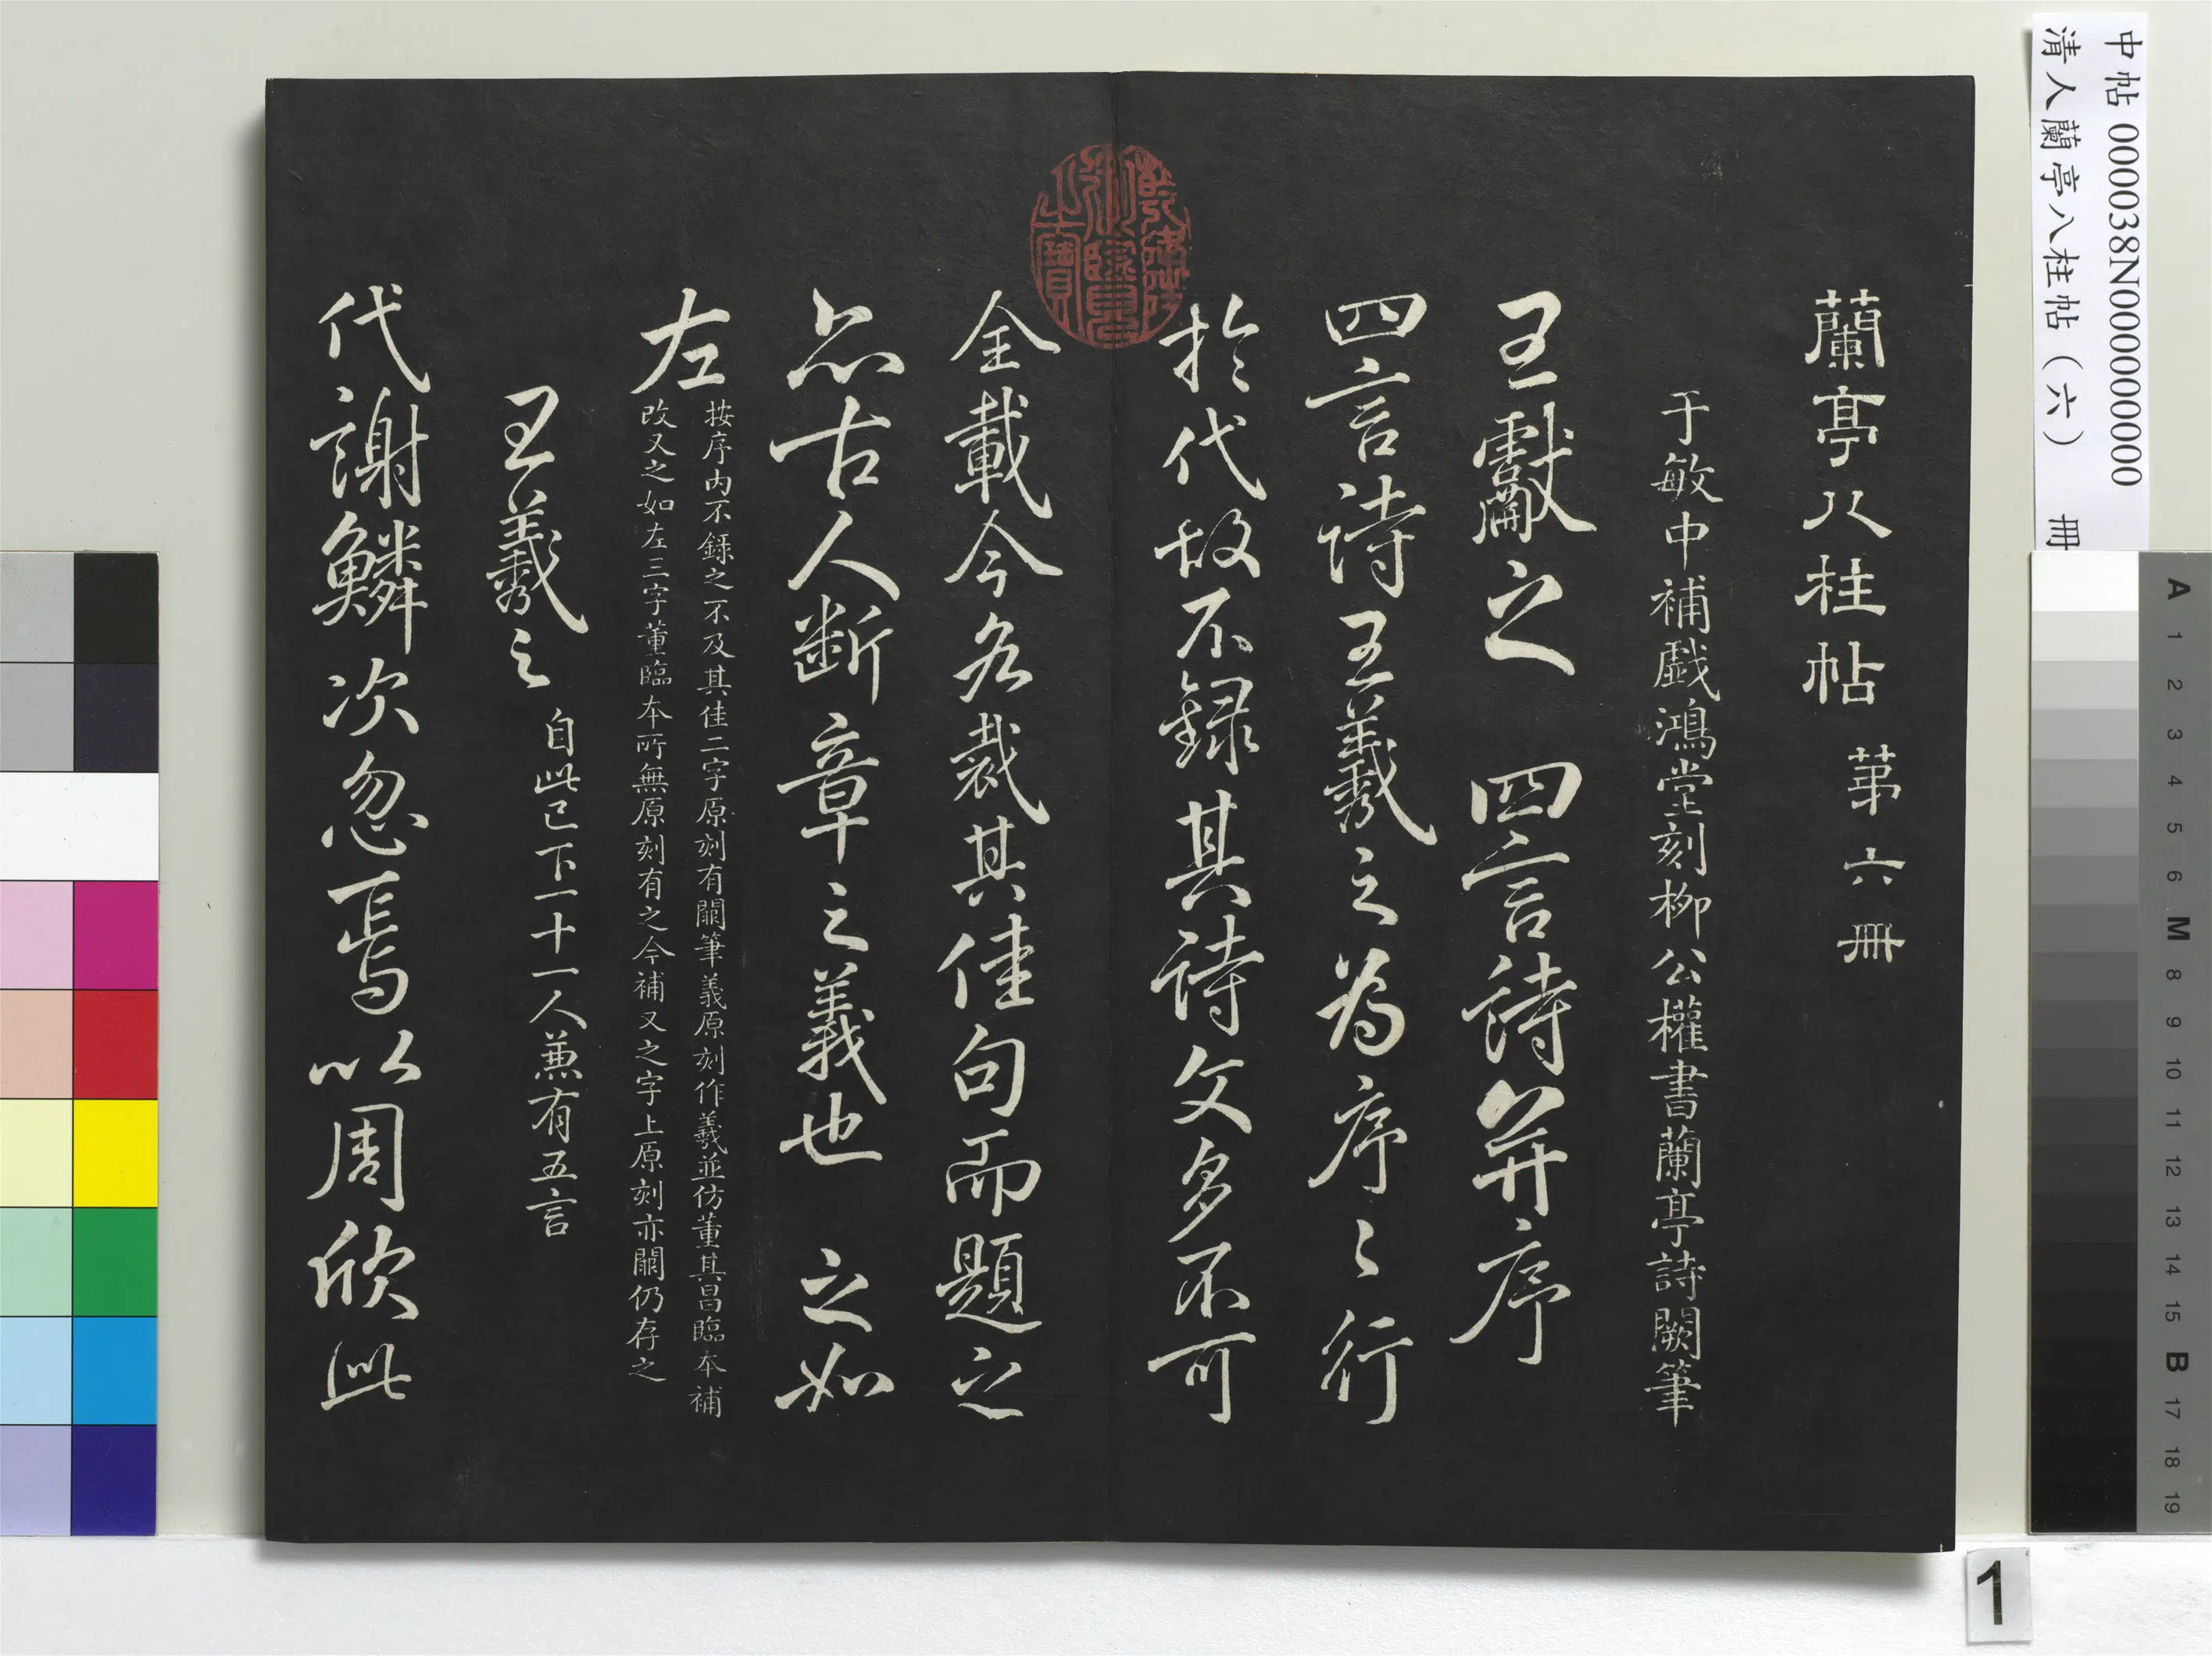 蘭亭八柱帖 第六冊
于敏中補戲鴻堂刻柳公權書蘭亭詩闕筆
王獻之 四言詩并序
四言詩王羲之為序々行
於代故不錄其詩文多不可
全載今各裁其佳句而題之
亦古人斷章之義也 之如
左
按序內不錄之不及其佳二字原刻有闕筆義原刻作羲並仿董其昌臨本補
改又之如左三字董臨本所無原刻有之今補又之字上原刻亦闕仍存之
王羲之 自此已下一十一人兼有五言
代謝鱗次忽焉以周欣此
乾隆御覽之寶
中帖 000038N000000000
清人蘭亭八柱帖（六） 冊
A 1 2 3 4 5 6 M 8 9 10 11 12 13 14 15 B 17 18 19
1